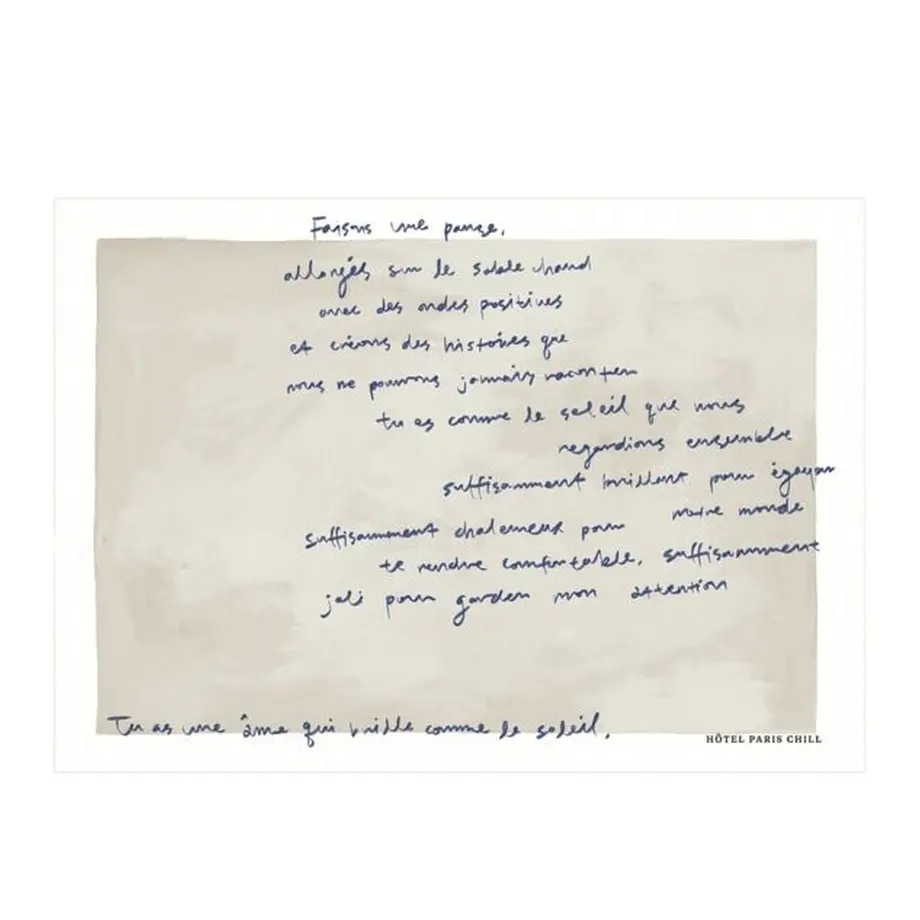 Faisons une pause,
allongés sur le sable chaud
avec des ondes positives
et créons des histoires que
nous ne pouvons jamais raconter
tu es comme le soleil que nous
regardions ensemble
suffisamment brillant pour égayer
notre monde
suffisamment chaleureux pour
te rendre confortable, suffisamment
joli pour garder mon attention
Tu as une âme qui brille comme le soleil,
HÔTEL PARIS CHILL